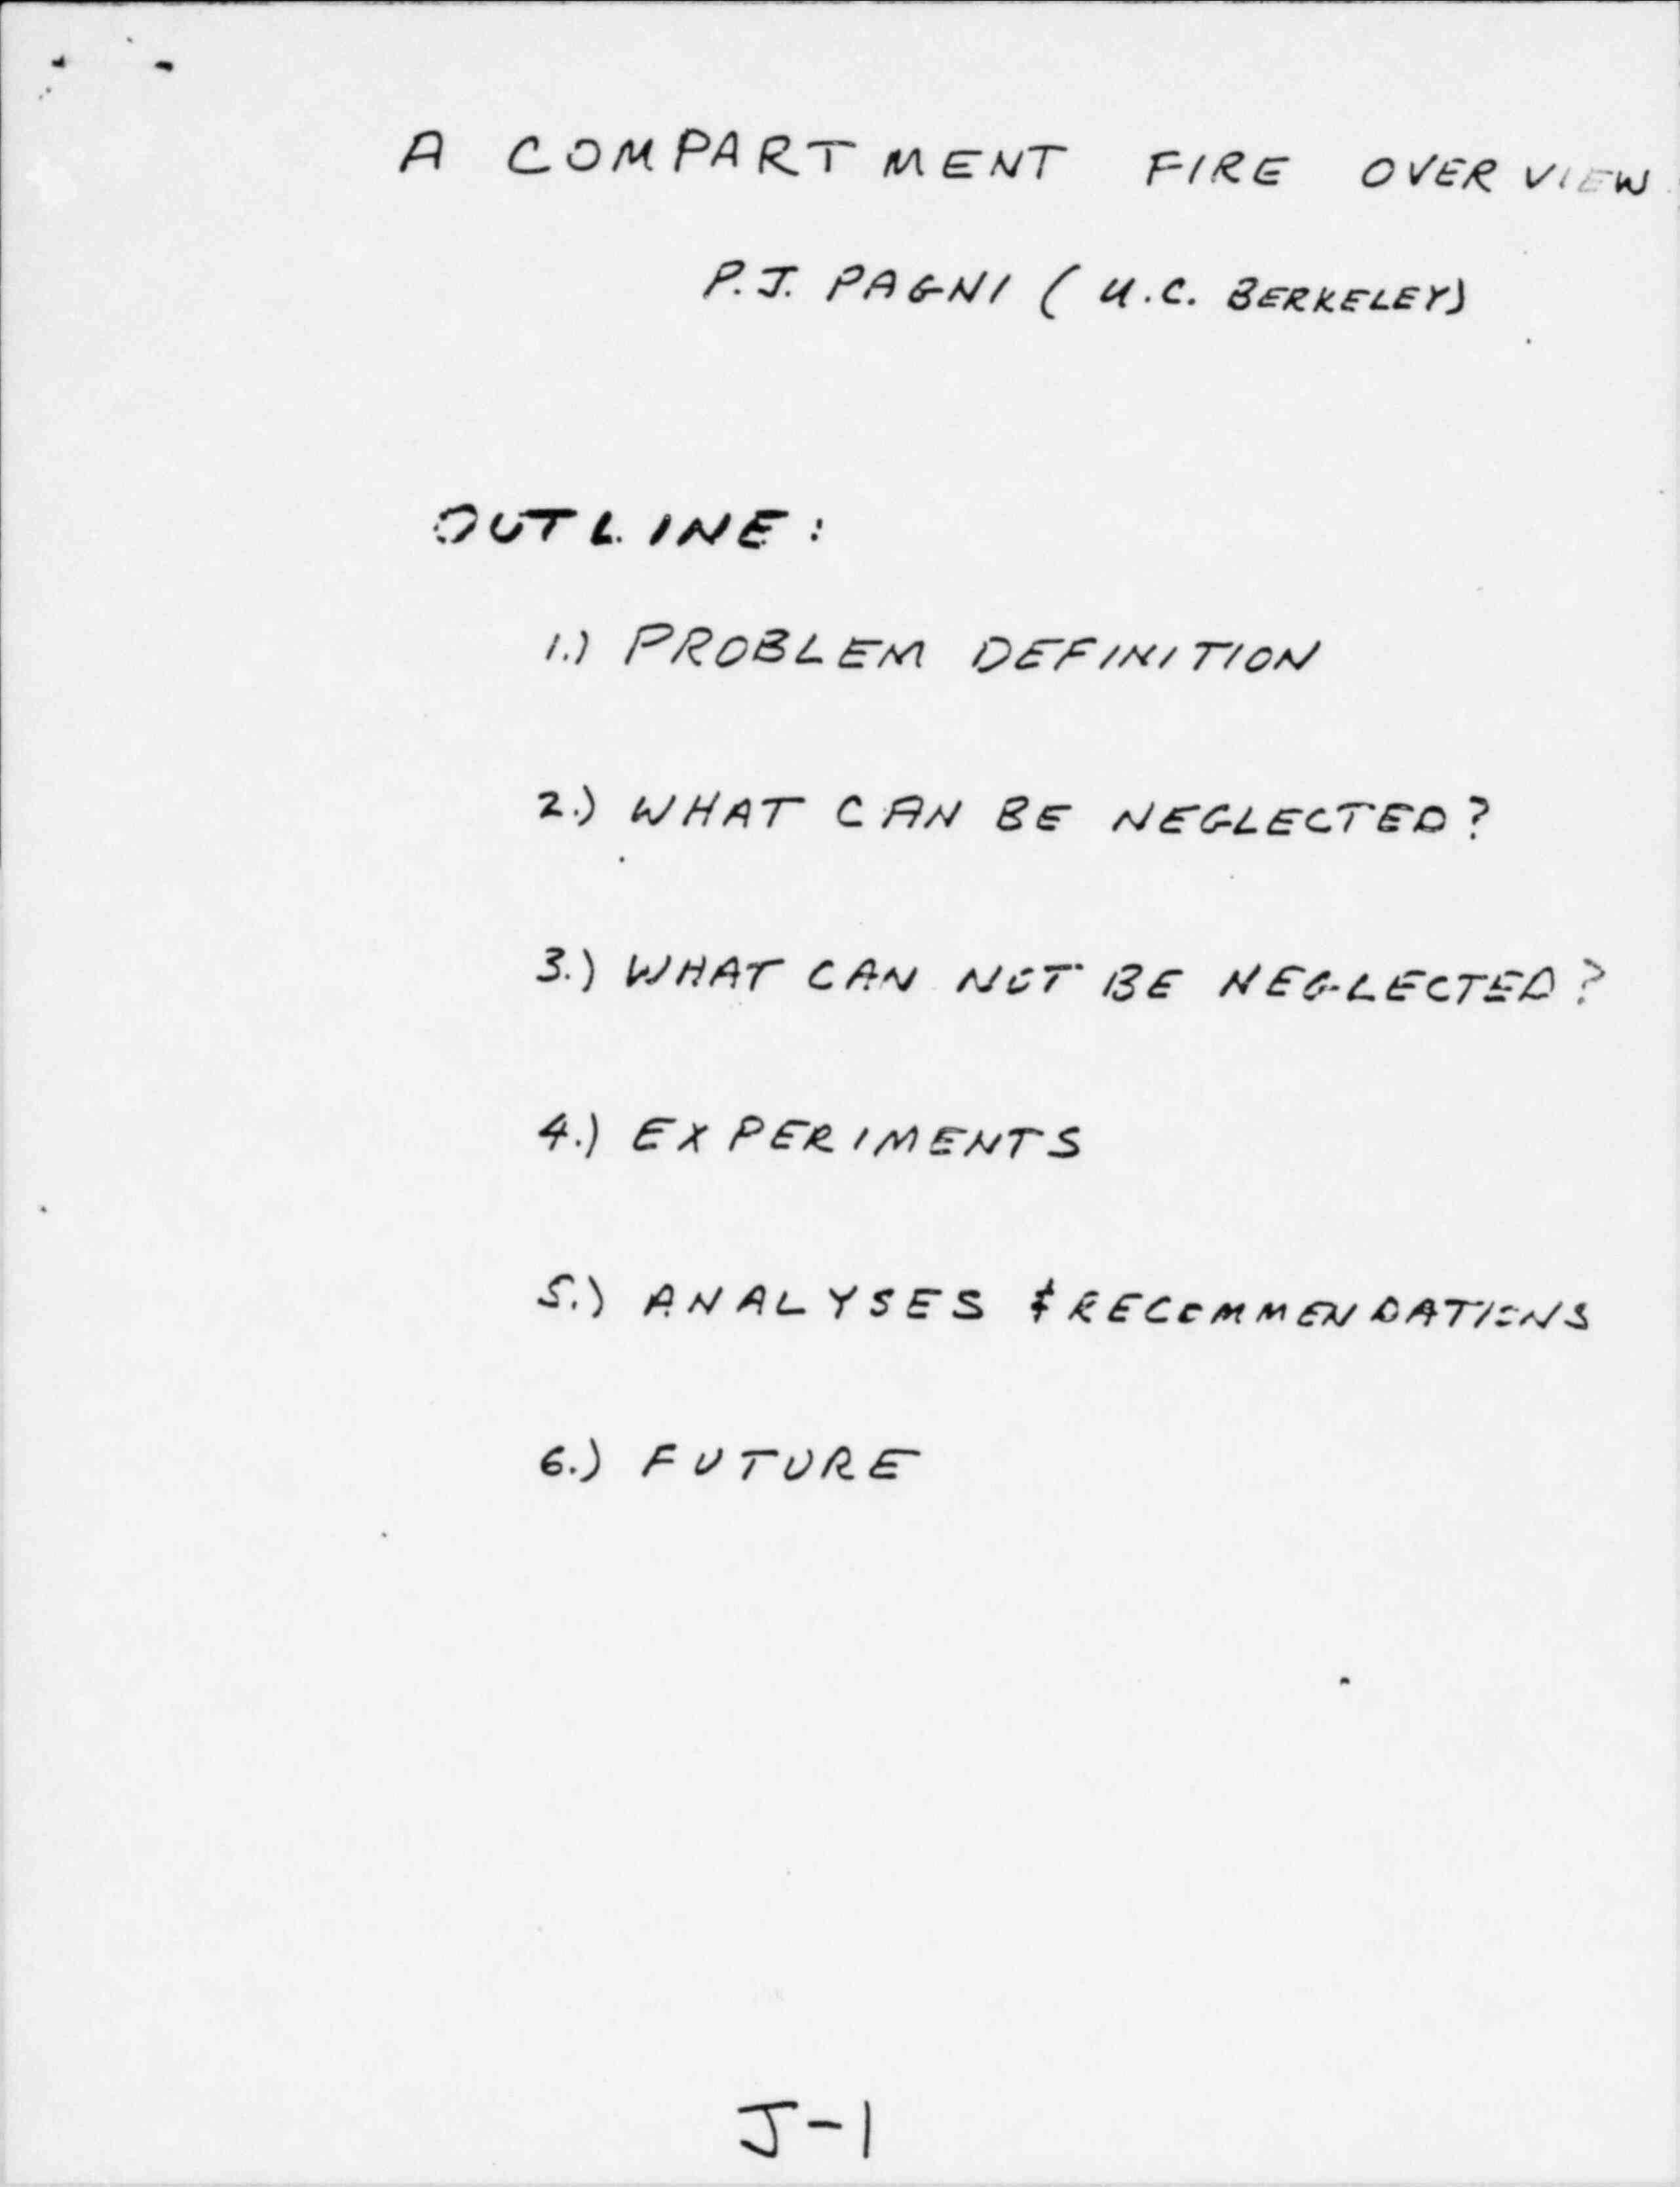 A COMPARTMENT FIRE OVERVIEW
P.J. PAGNI (U.C. BERKELEY)
OUTLINE:
1.) PROBLEM DEFINITION
2.) WHAT CAN BE NEGLECTED?
3.) WHAT CAN NOT BE NEGLECTED?
4.) EXPERIMENTS
5.) ANALYSES & RECOMMENDATIONS
6.) FUTURE
J-1